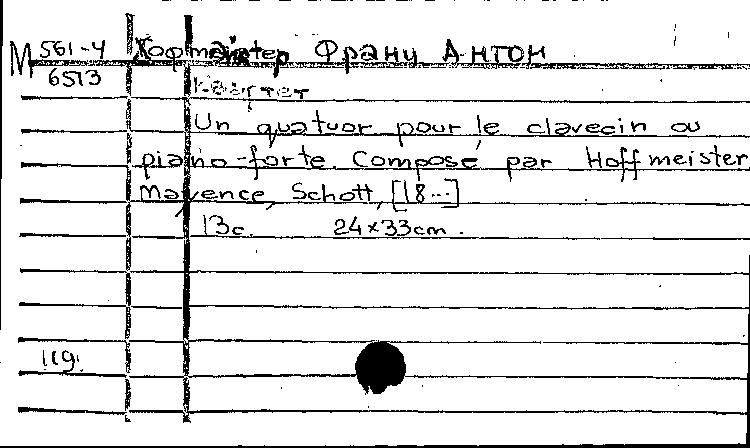 М 561-4 Хофмайстер Франц Антон
6513
Квартет
Un quatuor pour le clavecin ou
piano-forte. Composé par Hoffmeister
Mayence, Schott, [18...]
13c. 24x33cm.
119.